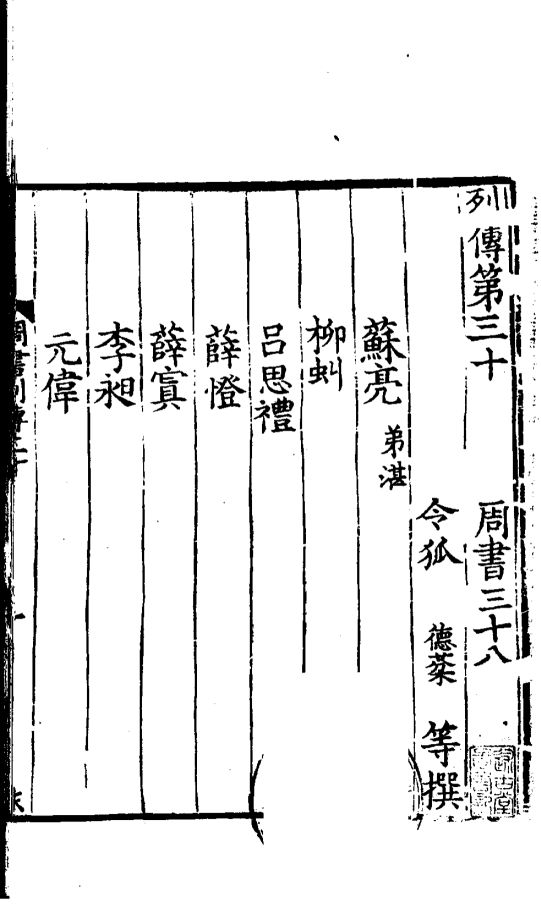 列傳第三十 周書三十八
令狐 德棻 等撰
蘇亮 弟湛
柳虯
吕思禮
薛憕
薛寘
李昶
元偉
周書列傳三十